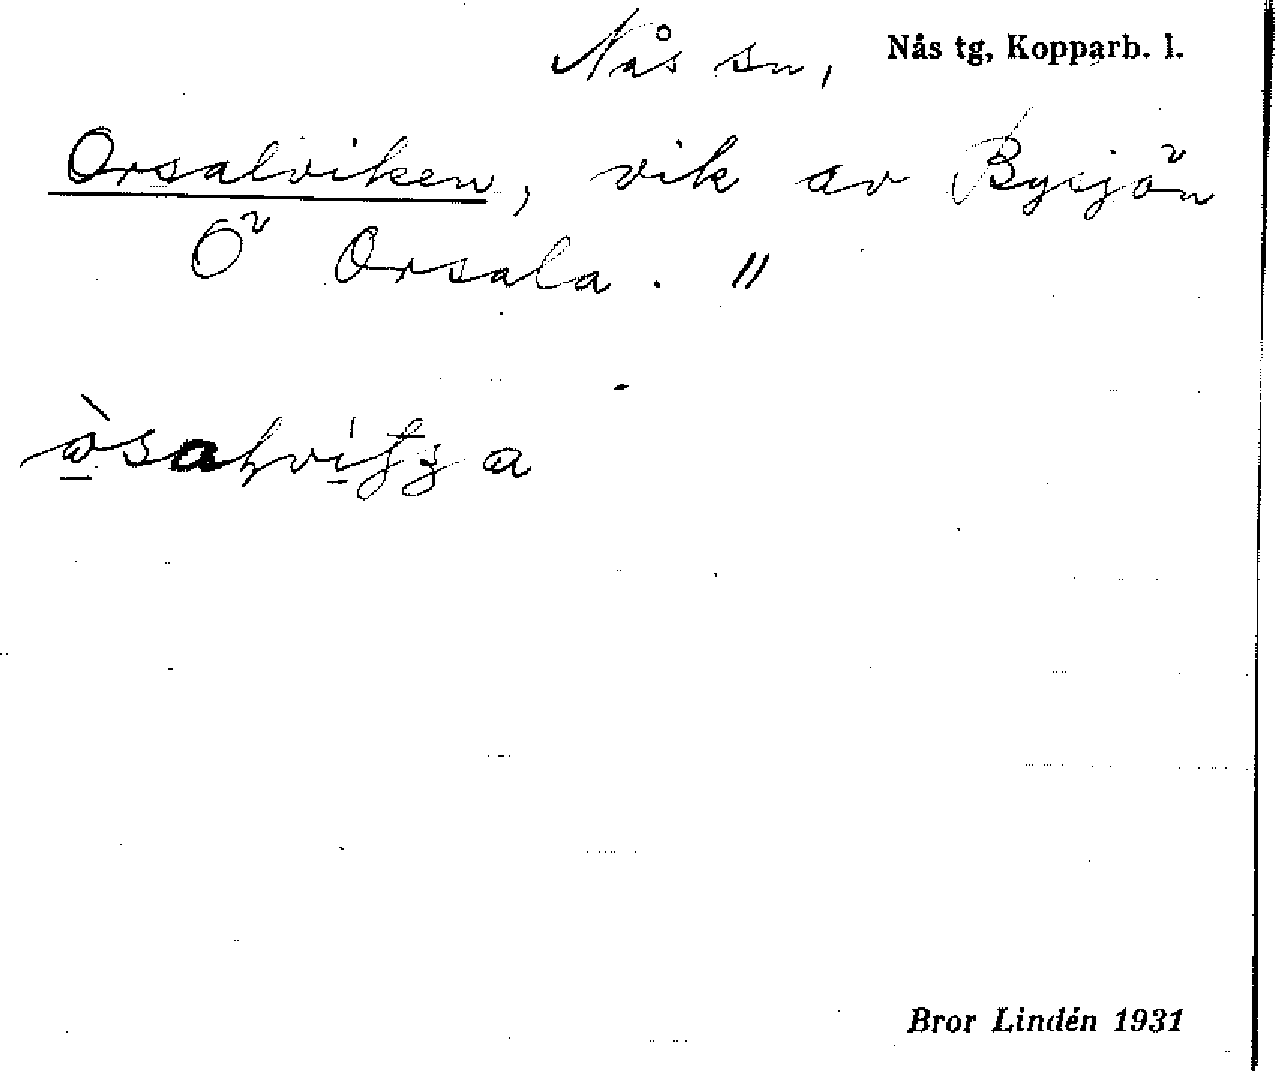 Nås sn, Nås tg, Kopparb. l.
Orsalviken, vik av Bysjön
Ö Orsala. "
Bror Lindén 1931